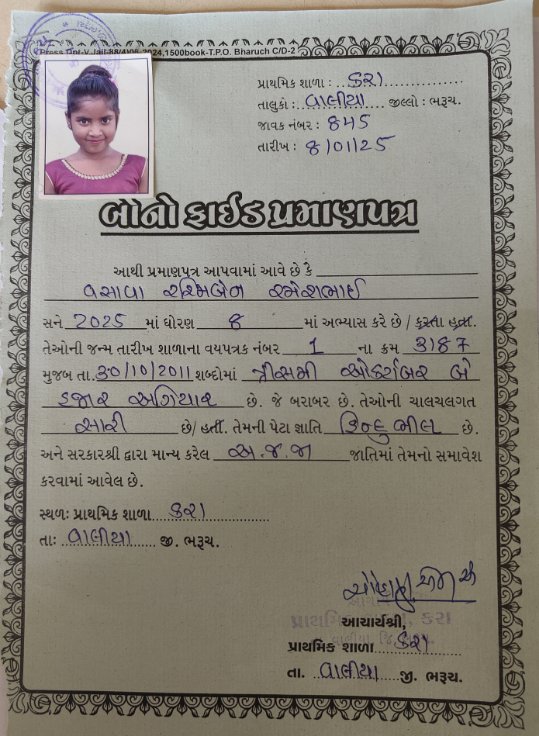 Press Dpt-V.Jait 88/4/06-2024,1500book-T.P.O. Bharuch C/D-2
પ્રાથમિક શાળા : કરા
તાલુકો : વાલીયા જીલ્લો : ભરૂચ.
જાવક નંબર : ૪૪5
તારીખ : 8/01/25
બોનો ફાઈડ પ્રમાણપત્ર
આથી પ્રમાણપત્ર આપવામાં આવે છે કે
વસાવા રશ્મિબેન રમેશભાઈ
સને 2025 માં ધોરણ 8 માં અભ્યાસ કરે છે / કરતા હતા.
તેઓની જન્મ તારીખ શાળાના વયપત્રક નંબર 1 ના ક્રમ 3187
મુજબ તા. 30/10/2011 શબ્દોમાં ત્રીસમી ઓક્ટોબર બે
હજાર અગિયાર છે. જે બરાબર છે. તેઓની ચાલચલગત
સારી છે/ હતી. તેમની પેટા જ્ઞાતિ હિન્દુ ભીલ છે.
અને સરકારશ્રી દ્વારા માન્ય કરેલ અ.જ.જા જાતિમાં તેમનો સમાવેશ
કરવામાં આવેલ છે.
સ્થળ: પ્રાથમિક શાળા કરા
તા: વાલીયા જી. ભરૂચ.
આચાર્યશ્રી,
પ્રાથમિક શાળા કરા
તા. વાલીયા જી. ભરૂચ.